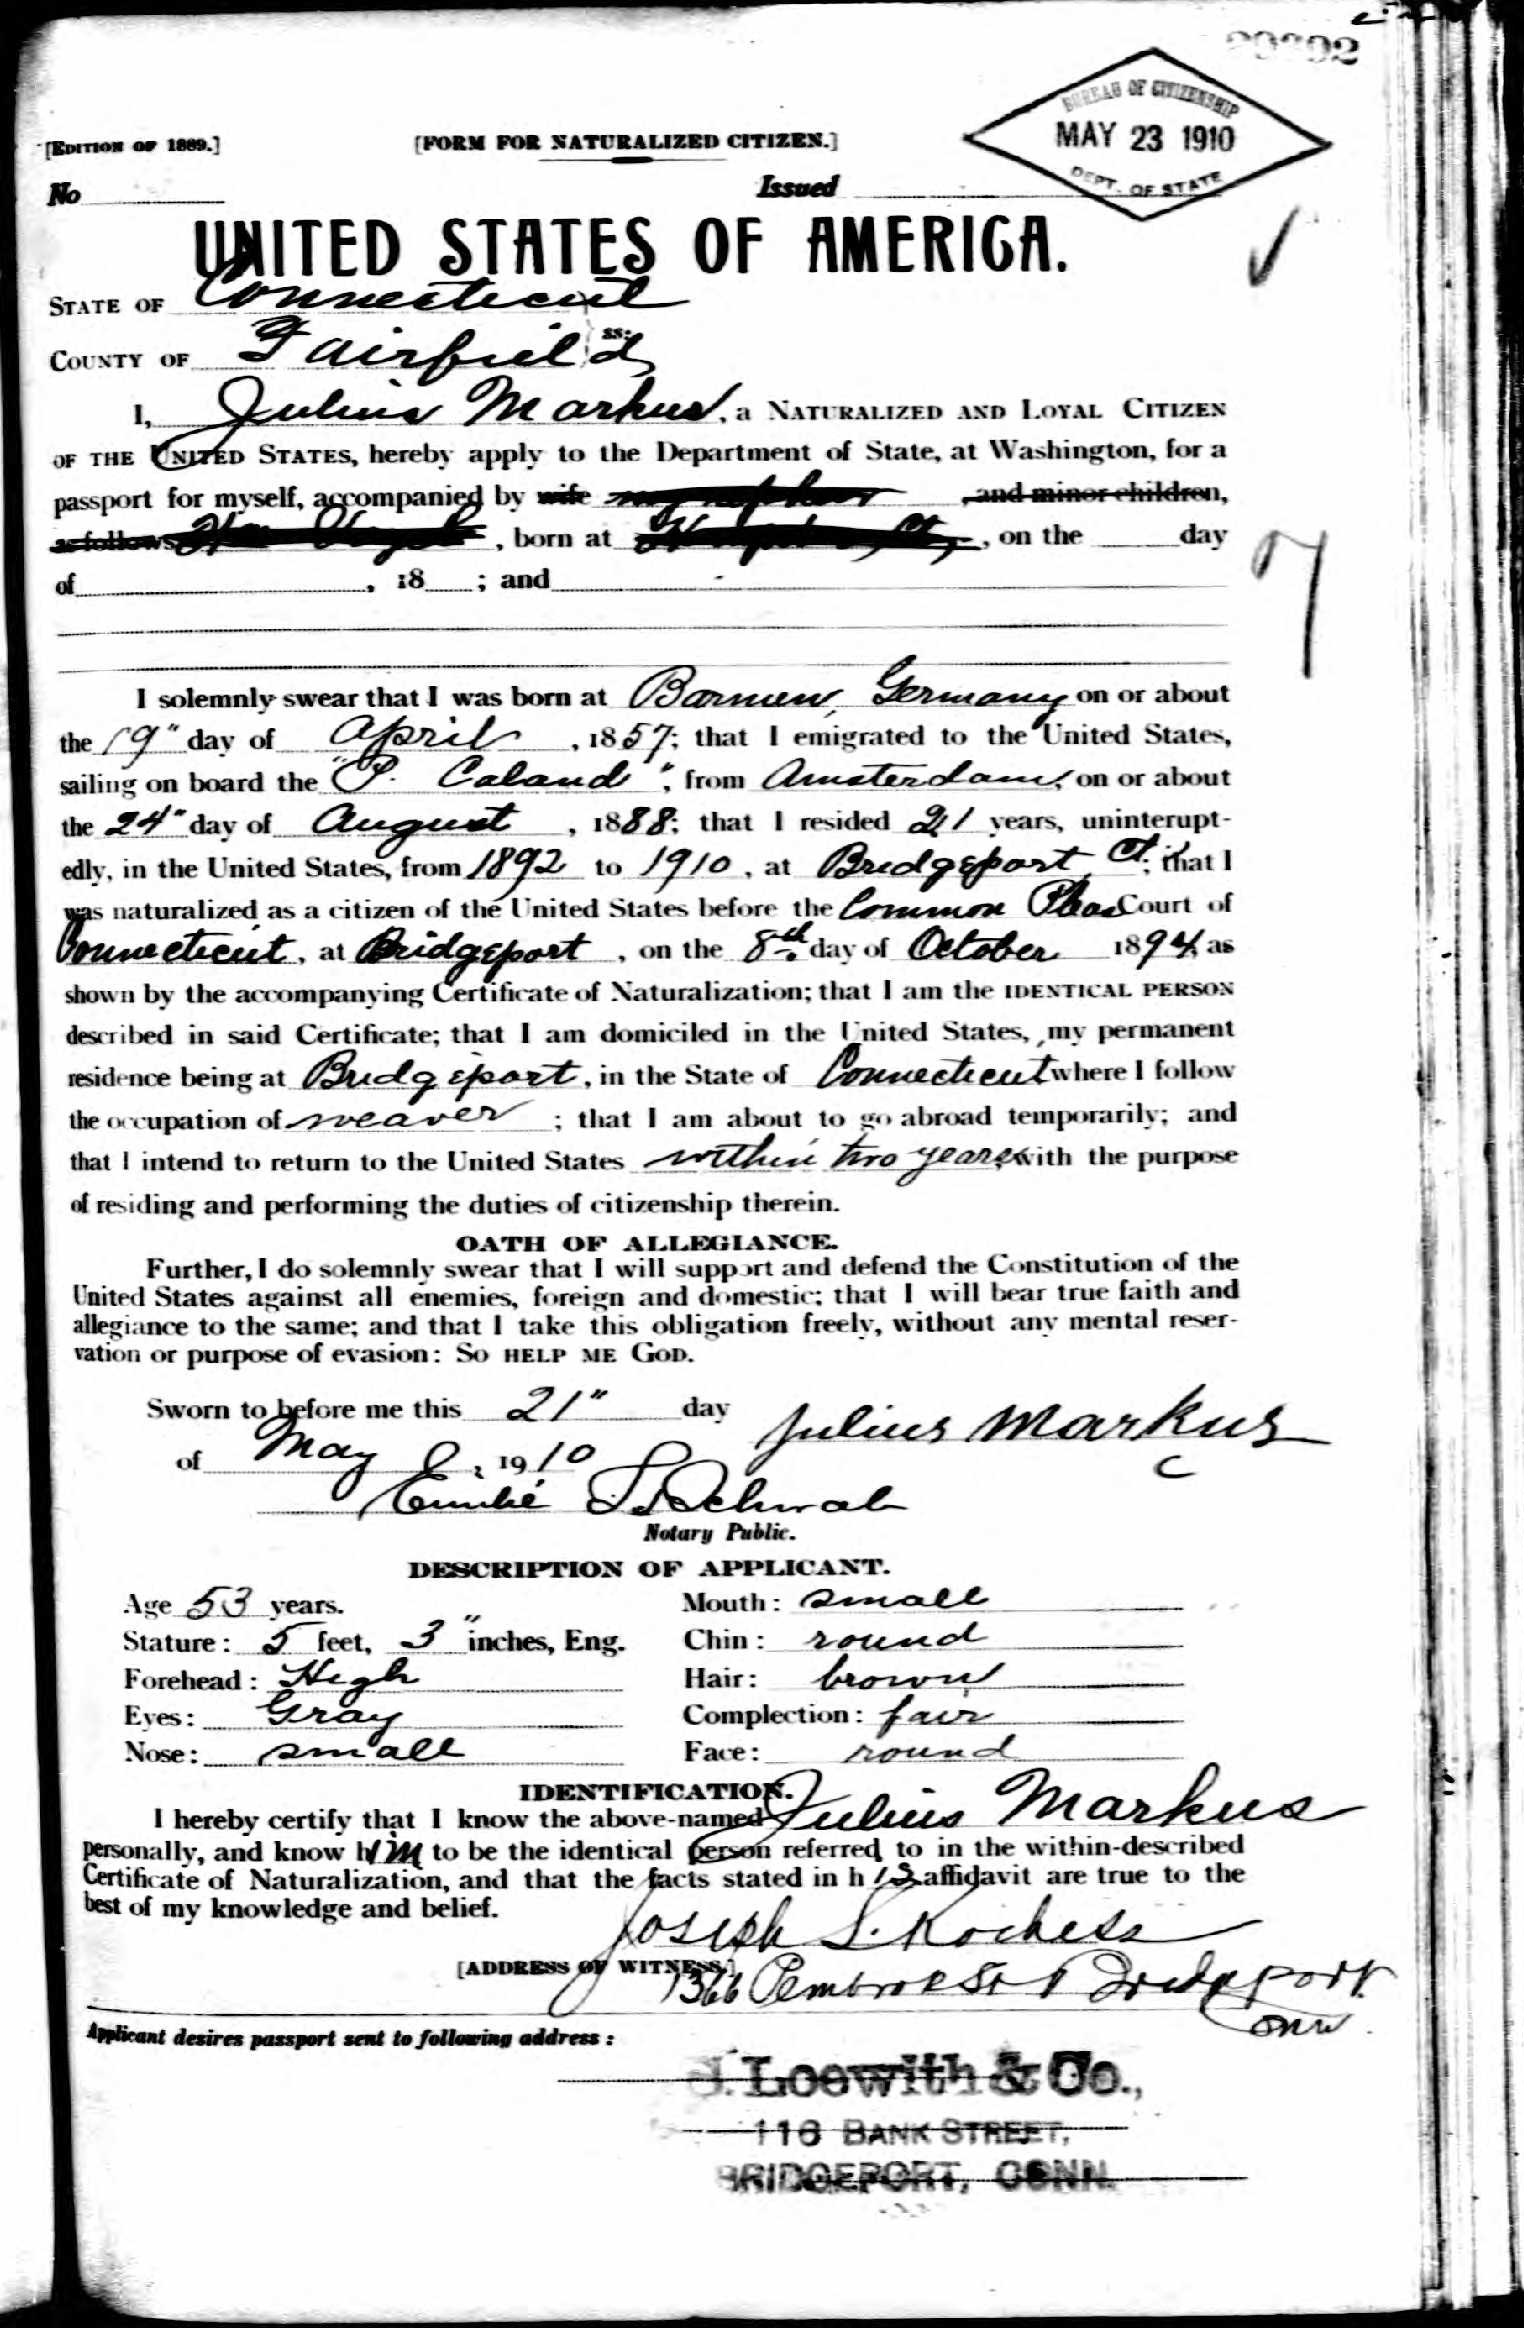 BUREAU OF CITIZENSHIP
MAY 23 1910
DEPT. OF STATE
[EDITION OF 1889.] [FORM FOR NATURALIZED CITIZEN.]
No Issued
UNITED STATES OF AMERICA.
STATE OF Connecticut
COUNTY OF Fairfield ss:
I, Julius Markus, a NATURALIZED AND LOYAL CITIZEN
OF THE UNITED STATES, hereby apply to the Department of State, at Washington, for a
passport for myself, accompanied by wife my nephew, and minor children,
as follows , born at , on the day
of , 18 ; and
7
I solemnly swear that I was born at Barmen, Germany on or about
the 19" day of April, 1857; that I emigrated to the United States,
sailing on board the "P. Caland", from Amsterdam, on or about
the 24" day of August, 1888; that I resided 21 years, uninterupt-
edly, in the United States, from 1892 to 1910, at Bridgeport, Ct.; that I
was naturalized as a citizen of the United States before the Common Pleas Court of
Connecticut, at Bridgeport, on the 8th day of October 1894, as
shown by the accompanying Certificate of Naturalization; that I am the IDENTICAL PERSON
described in said Certificate; that I am domiciled in the United States, my permanent
residence being at Bridgeport, in the State of Connecticut where I follow
the occupation of weaver; that I am about to go abroad temporarily; and
that I intend to return to the United States within two years with the purpose
of residing and performing the duties of citizenship therein.
OATH OF ALLEGIANCE.
Further, I do solemnly swear that I will support and defend the Constitution of the
United States against all enemies, foreign and domestic; that I will bear true faith and
allegiance to the same; and that I take this obligation freely, without any mental reser-
vation or purpose of evasion: SO HELP ME GOD.
Sworn to before me this 21" day Julius Markus
of May, 1910
Schwab
Notary Public.
DESCRIPTION OF APPLICANT.
Age 53 years. Mouth: small
Stature: 5 feet, 3" inches, Eng. Chin: round
Forehead: High Hair: brown
Eyes: Gray Complection: fair
Nose: small Face: round
IDENTIFICATION.
I hereby certify that I know the above-named Julius Markus
personally, and know him to be the identical person referred to in the within-described
Certificate of Naturalization, and that the facts stated in his affidavit are true to the
best of my knowledge and belief.
Joseph S.
[ADDRESS OF WITNESS.] 1366 Pembroke St Bridgeport
Conn
Applicant desires passport sent to following address:
J. Loewith & Co.,
116 BANK STREET,
BRIDGEPORT, CONN.